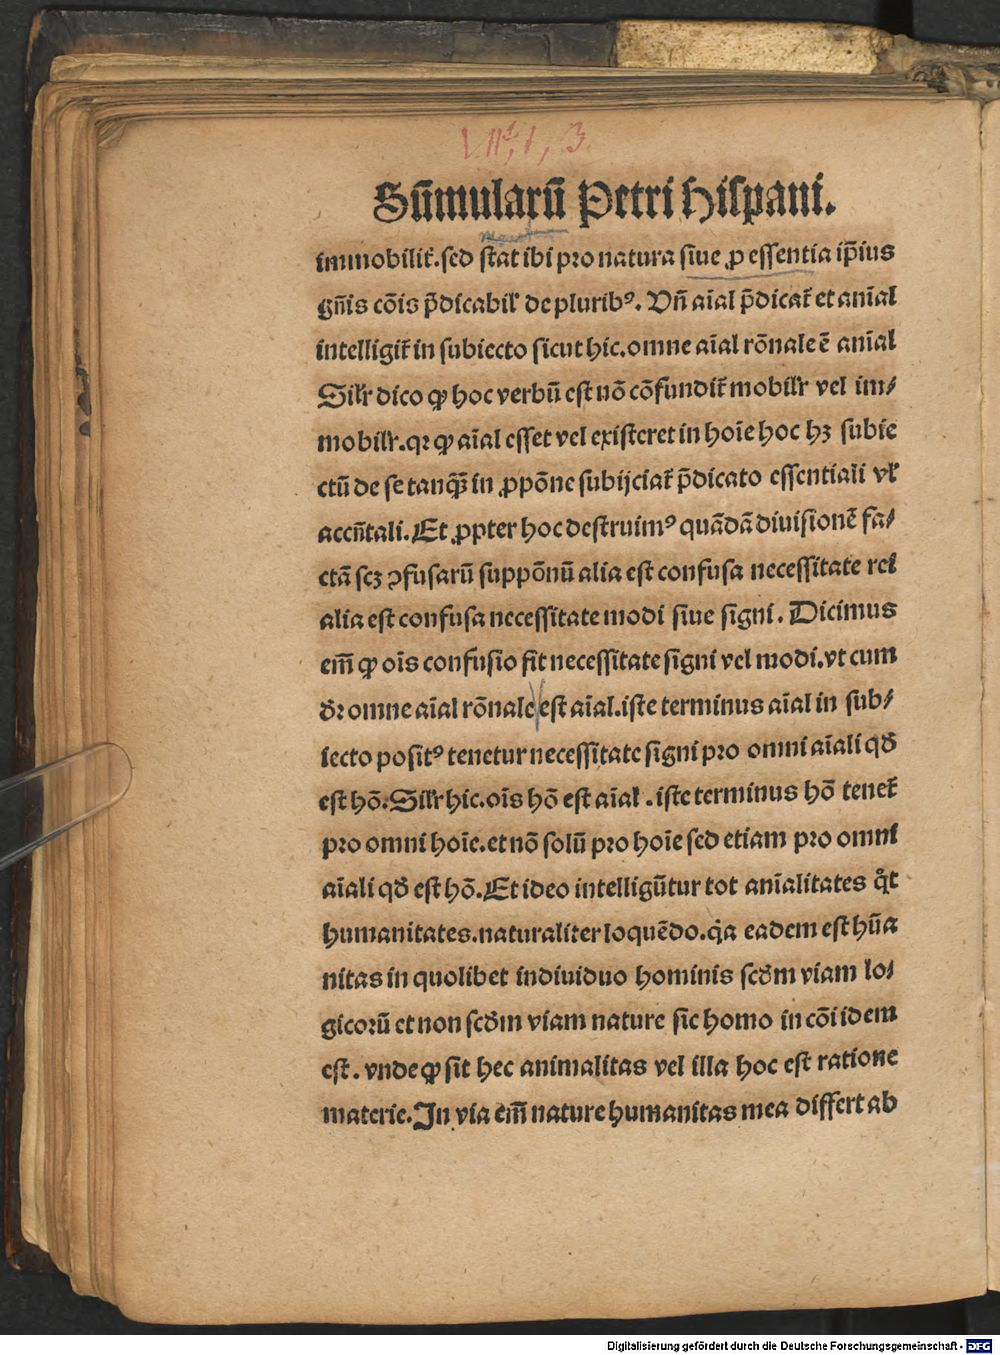 Sūmularū Petri Hispani.
immobilit̄. sed stat ibi pro natura siue ꝓ essentia ip̄ius
gn̄is cōis p̄dicabil' de pluribꝰ. Vn̄ aīal p̄dicat̄ et anīal
intelligit̄ in subiecto sicut hic. omne aīal rōnale ē anīal
Silr̄ dico ꝙ hoc verbū est nō cōfundit̄ mobilr̄ vel im⸗
mobilr̄. qꝛ ꝙ aīal esset vel existeret in hoīe hoc hꝫ subie
ctū de se tanqꝫ̄ in ꝓpōne subijciat̄ p̄dicato essentiali vl'
accn̄tali. Et ꝓpter hoc destruimꝰ quādā diuisionē fa⸗
ctā scꝫ ꝯfusarū suppōnū alia est confusa necessitate rei
alia est confusa necessitate modi siue signi. Dicimus
em̄ ꝙ oīs confusio fit necessitate signi vel modi. vt cum
dꝛ omne aīal rōnale est aīal. iste terminus aīal in sub⸗
iecto positꝰ tenetur necessitate signi pro omni aīali qd̄
est hō. Silr̄ hic. oīs hō est aīal. iste terminus hō tenet̄
pro omni hoīe. et nō solū pro hoīe sed etiam pro omni
aīali qd̄ est hō. Et ideo intelligūtur tot anīalitates qͣt
humanitates. naturaliter loquēdo. qͥa eadem est hūa
nitas in quolibet indiuiduo hominis scd̄m viam lo⸗
gicorū et non scd̄m viam nature sic homo in cōi idem
est. vnde ꝙ sit hec animalitas vel illa hoc est ratione
materie. In via em̄ nature humanitas mea differt ab
Digitalisierung gefördert durch die Deutsche Forschungsgemeinschaft - DFG